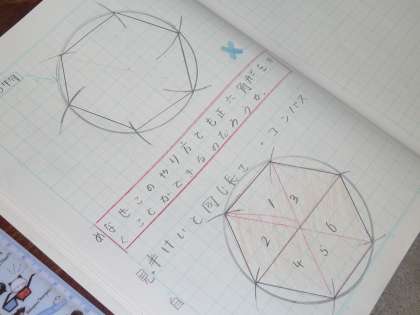 め なぜこのやり方でも正六角形をか
くことができるのだろうか。
見・半けいと同じ長さ ・コンパス
自
1
2
3
4
5
6